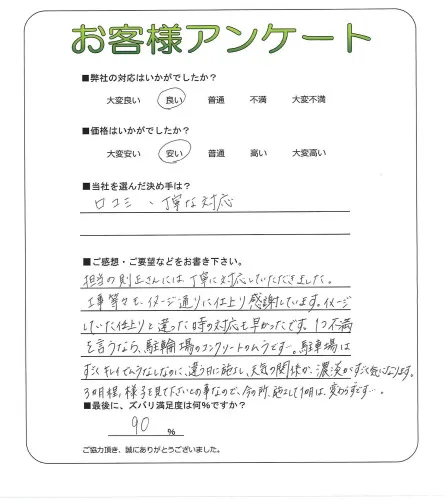 お客様アンケート
■弊社の対応はいかがでしたか?
大変良い 良い 普通 不満 大変不満
■価格はいかがでしたか?
大変安い 安い 普通 高い 大変高い
■当社を選んだ決め手は?
口コミ、丁寧な対応
■ご感想・ご要望などをお書き下さい。
担当の則正さんには丁寧に対応していただきました。
工事等々も、イメージ通りに仕上り感謝しています。イメージ
していた仕上りと違った時の対応も早かったです。1つ不満
を言うなら、駐輪場のコンクリートのムラです…。駐車場は
すごくキレイでムラなしなのに、違う日に施工し、天気の関係か、濃淡がすごく気になります。
3ヵ月程、様子を見て下さいとの事なので、今の所、施工して1ヵ月は、変わらずです…。
■最後に、ズバリ満足度は何%ですか?
90 %
ご協力頂き、誠にありがとうございました。